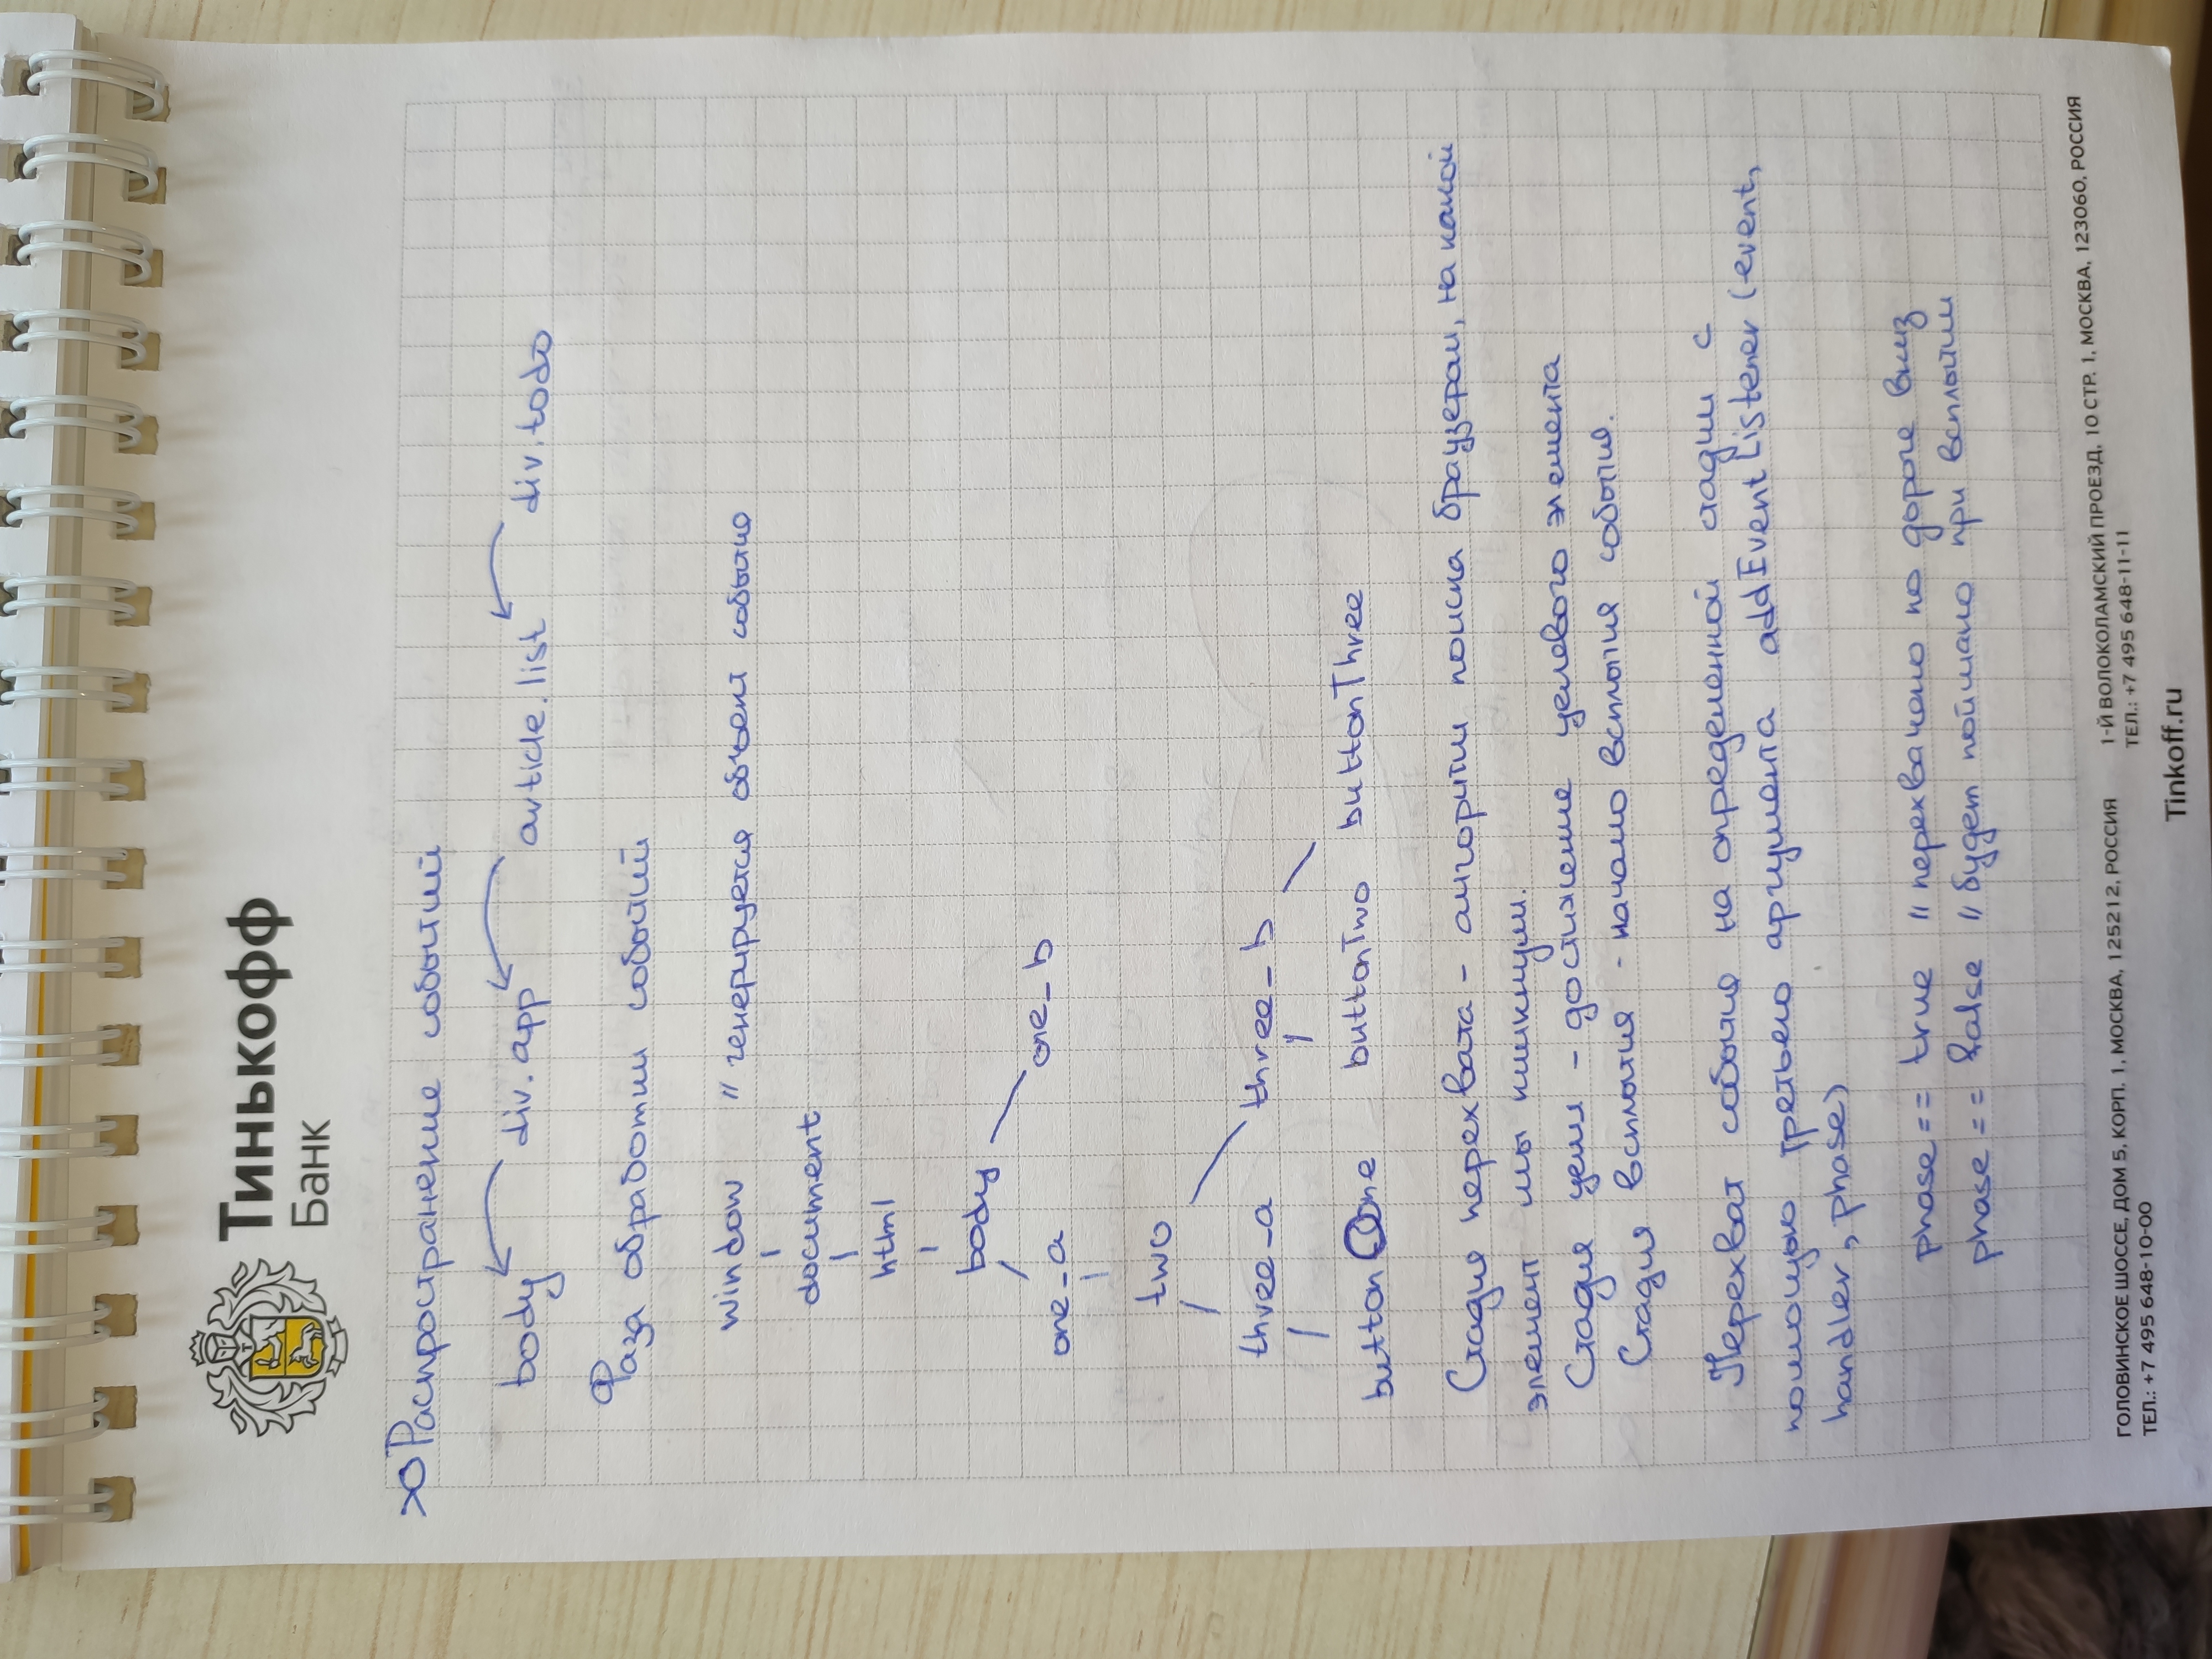 Тинькофф
Банк
Распространение событий
body div.app article.list div.todo
Фаза обработки событий
window // генерируется объект события
document
html
body
one_b
one_a
two
three_a three_b
buttonOne buttonTwo buttonThree
Стадия перехвата - алгоритм поиска браузером, на какой
элемент мы кликнули.
Стадия цели - достижение целевого элемента
Стадия всплытия - начало всплытия события.
Перехват события на определенной стадии с
помощью третьего аргумента addEventListener (event,
handler, phase)
phase == true // перехвачено по дороге вниз
phase == false // будет поймано при всплытии
ГОЛОВИНСКОЕ ШОССЕ, ДОМ 5, КОРП. 1, МОСКВА, 125212, РОССИЯ
ТЕЛ.: +7 495 648-10-00
1-Й ВОЛОКОЛАМСКИЙ ПРОЕЗД, 10 СТР. 1, МОСКВА, 123060, РОССИЯ
ТЕЛ.: +7 495 648-11-11
Tinkoff.ru